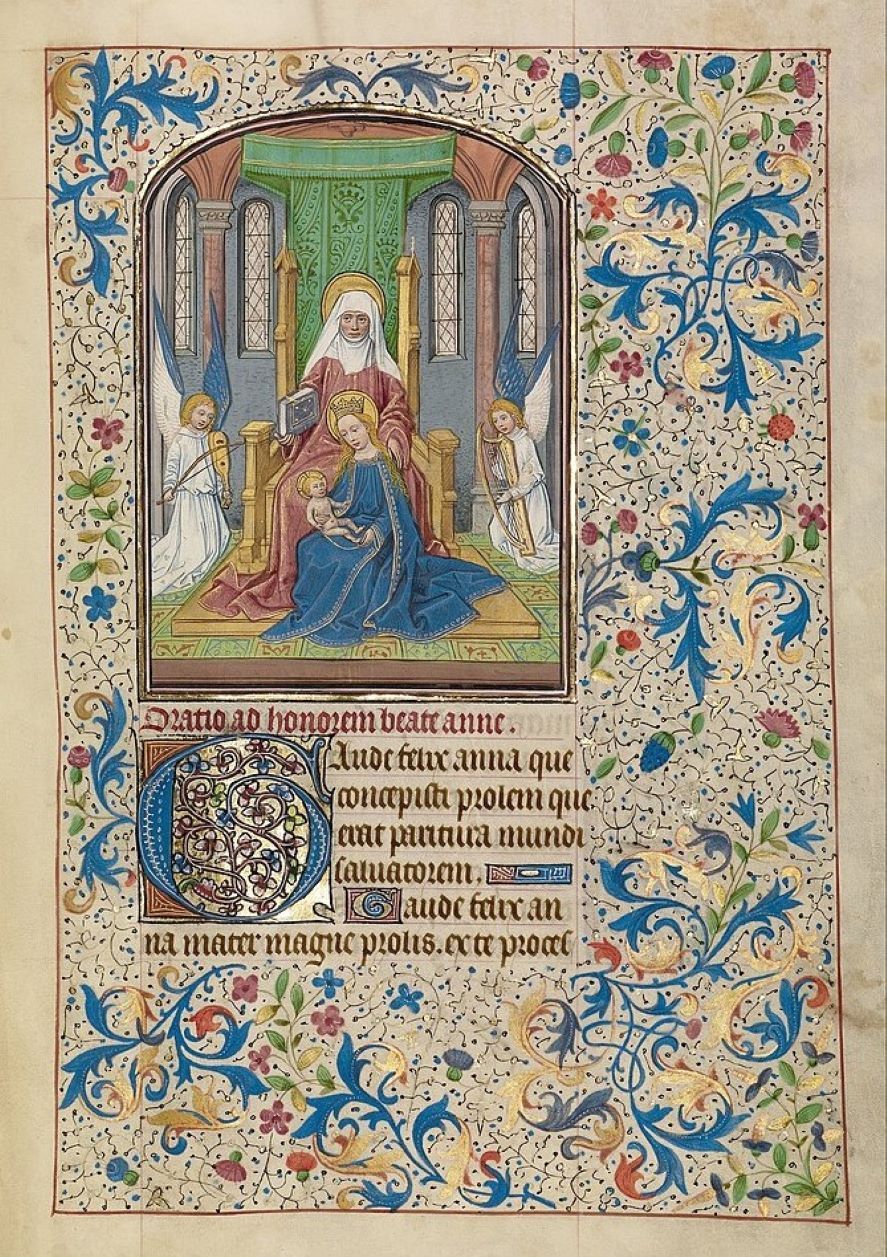 Oratio ad honorem beate anne.
GAude felix anna que
concepisti prolem que
erat paritura mundi
saluatorem.
Gaude felix an
na mater magne prolis. ex te proces